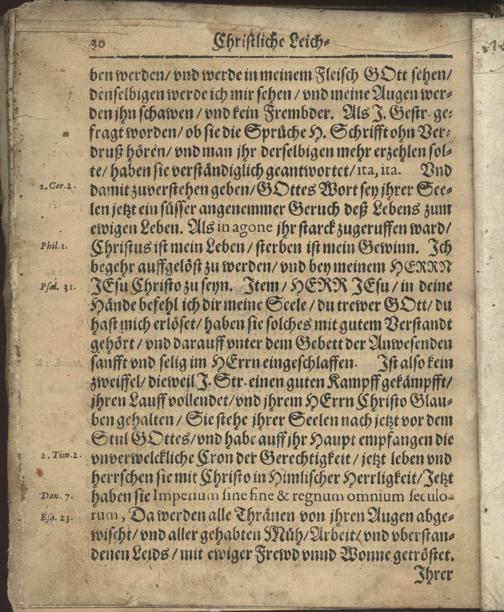 30
Christliche Leich-
ben werden/ vnd werde in meinem Fleisch GOtt sehen/
denselbigen werde ich mir sehen / vnd meine Augen wer-
den jhn schawen / vnd kein Frembder. Als J. Gestr. ge-
fragt worden/ ob sie die Sprüche H. Schrifft ohn Ver-
druß hören/ vnd man jhr derselbigen mehr erzehlen sol-
te/ haben sie verständiglich geantwortet/ ita, ita. Vnd
2. Cor. 2.
damit zuverstehen geben/ GOttes Wort sey jhrer See-
len jetzt ein süsser angenemmer Geruch deß Lebens zum
ewigen Leben. Als in agone jhr starck zugeruffen ward/
Phil. 1.
Christus ist mein Leben/ sterben ist mein Gewinn. Ich
begehr auffgelöst zu werden/ vnd bey meinem HERRN
Psal. 31.
JEsu Christo zu seyn. Item/ HERR JEsu/ in deine
Hände befehl ich dir meine Seele/ du trewer GOtt/ du
hast mich erlöset/ haben sie solches mit gutem Verstandt
gehört/ vnd darauff vnter dem Gebett der Anwesenden
sanfft vnd selig im HErrn eingeschlaffen. Ist also kein
zweiffel/ dieweil J. Str. einen guten Kampff gekämpfft/
jhren Lauff vollendet/ vnd jhrem HErrn Christo Glau-
ben gehalten / Sie stehe jhrer Seelen nach jetzt vor dem
Stul GOttes/ vnd habe auff jhr Haupt empfangen die
2. Tim. 2.
vnverwelckliche Cron der Gerechtigkeit / jetzt leben vnd
herrschen sie mit Christo in Himlischer Herrligkeit/ Jetzt
Dan. 7.
haben sie Imperium sine fine & regnum omnium seculo-
Esa. 25.
rum, Da werden alle Thränen von jhren Augen abge-
wischt/ vnd aller gehabten Müh/ Arbeit/ vnd vberstan-
denen Leids / mit ewiger Frewd vnnd Wonne getröstet.
Jhrer